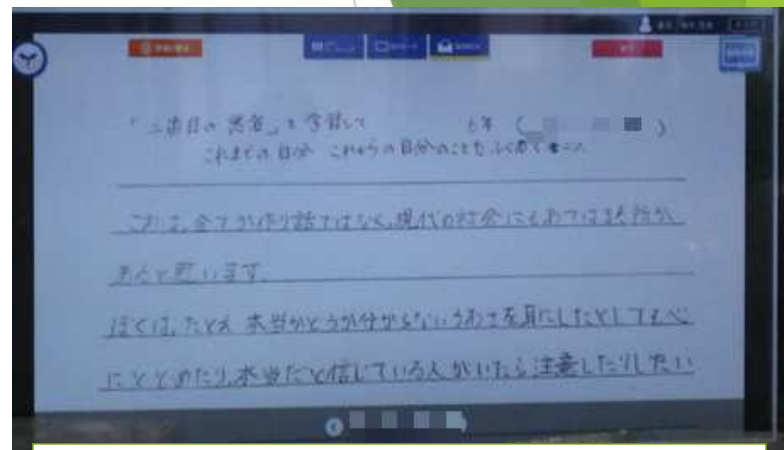 「二番目の悪者」を学習して 6年（
これまでの自分 これからの自分のこともふくめて
これは、全てが作り話ではなく、現代の社会にもあてはまる所が
あると思います。
ぼくは、たとえ本当かどうか分からないうわさを耳にしたとしても心
にとどめたり、本当だと信じている人がいたら注意したりしたい